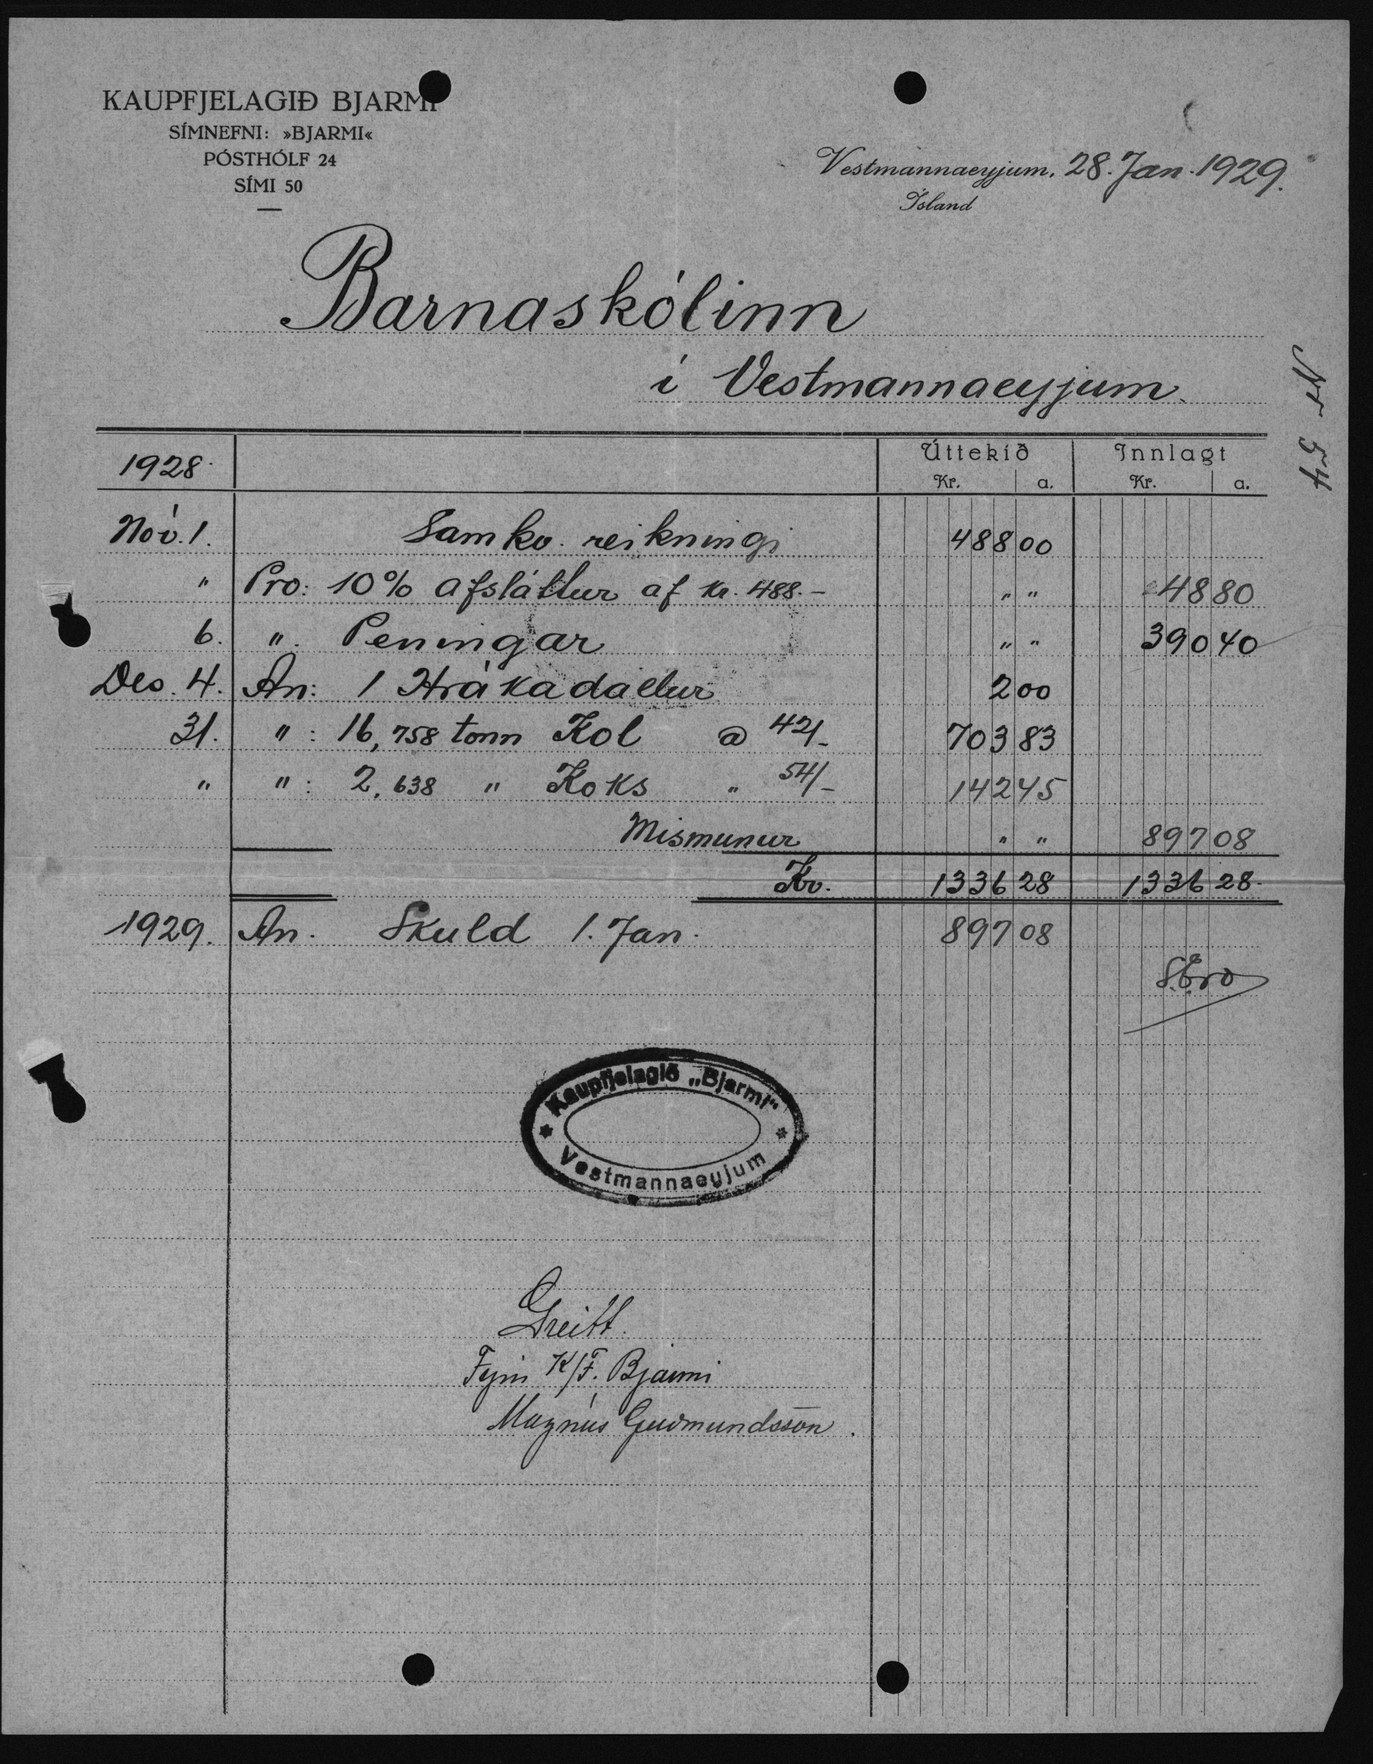 KAUPFJELAGIÐ BJARMI
SÍMNEFNI: »BJARMI«
PÓSTHÓLF 24
SÍMI 50
Vestmannaeyjum, 28. Jan. 1929.
Ísland
Barnaskólinn
í Vestmannaeyjum.
Nr 54
1928. Úttekið Innlagt
Kr. a. Kr. a.
Nóv. 1. Samkv. reikningi 488 00
" Pro: 10% afsláttur af kr. 488.- " " 48 80
6. " Peningar " " 390 40
Des. 4. An: 1 Hrákadallur 2 00
31. " : 16,758 tonn Kol @ 42/- 703 83
" " : 2,638 " Koks " 54/- 142 45
Mismunur " " 897 08
Kr. 1336 28 1336 28
1929. An. Skuld 1. Jan. 897 08
S.E.&O
Kaupfjelagið „Bjarmi"
* *
Vestmannaeyjum
Greitt.
F. K/F. Bjarmi
Magnús Guðmundsson.